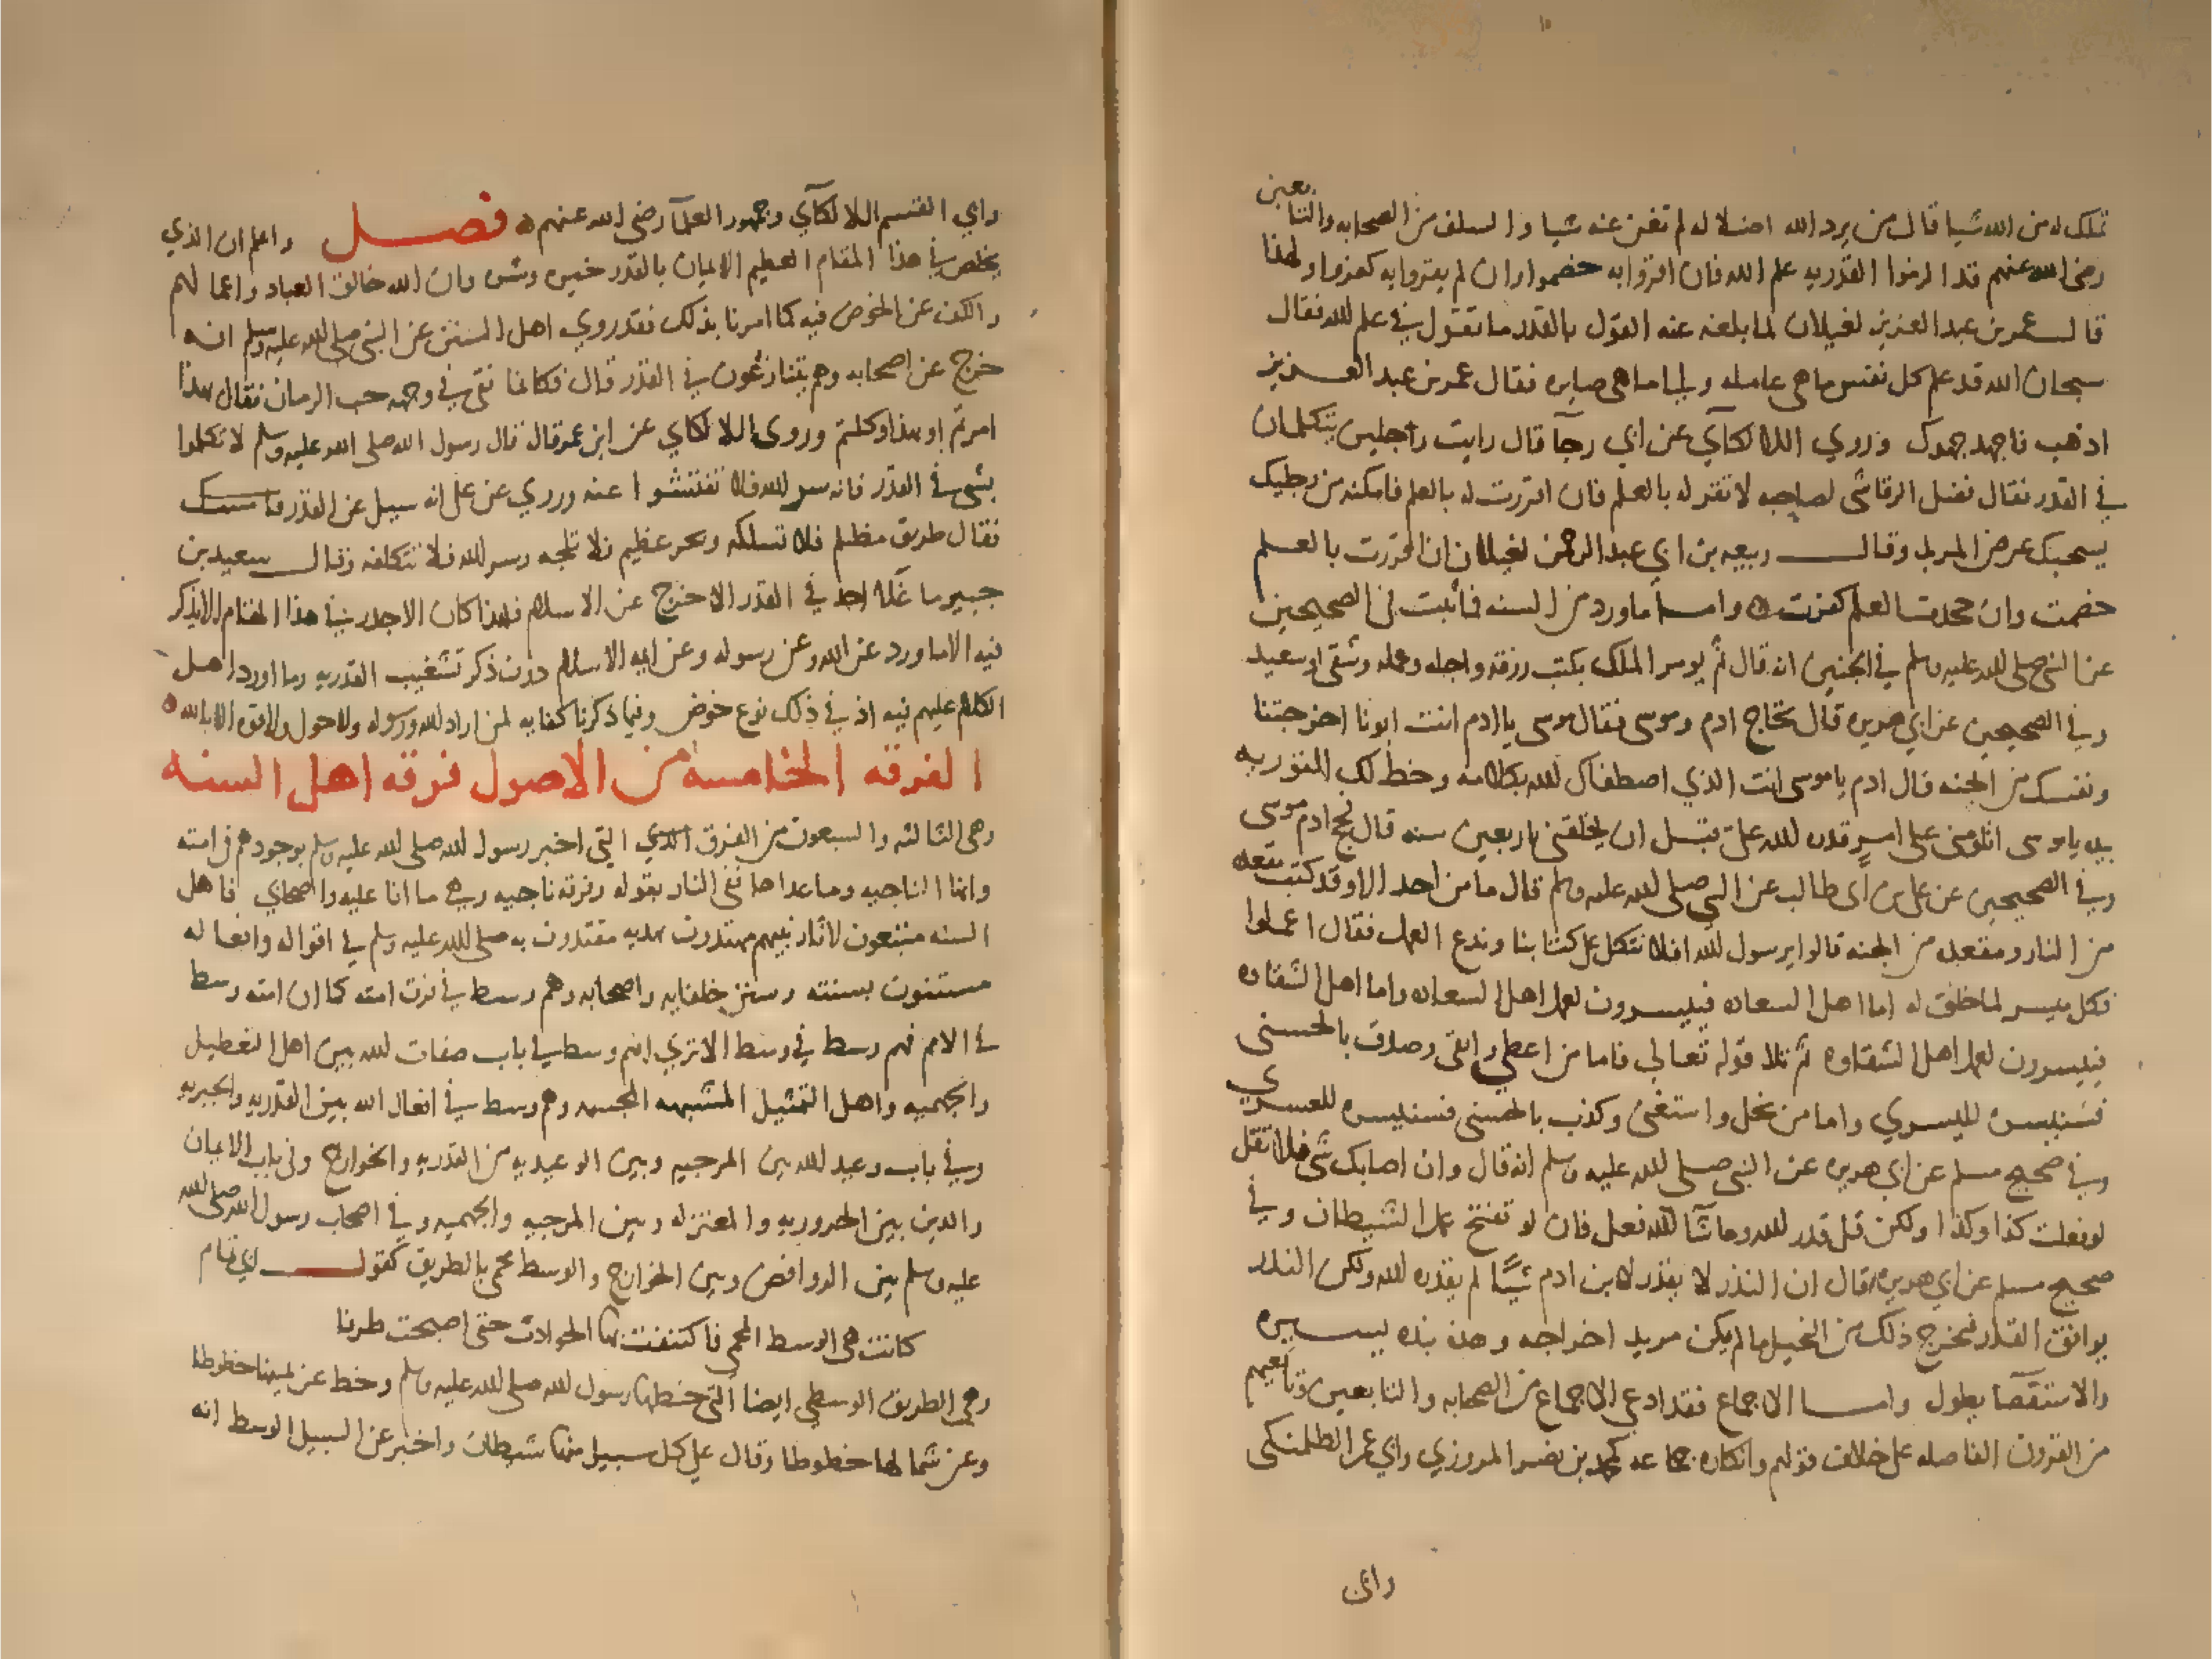 تملك له من الله شيا قال من يرد الله اضلاله لم تغن عنه شيا والسلف من الصحابه والتابعين
رضي الله عنهم قد الزموا القدريه علم الله فان اقروا به خصموا وان لم يقروا به كفروا ولهذا
قال عمر بن عبد العزيز لغيلان لما بلغه عنه القول بالقدر ما تقول في علم الله فقال
سبحان الله قد علم كل نفس ما هي عامله والى ما هي صايره فقال عمر بن عبد العزيز
اذهب فاجهد جهدك وروي اللالكآي عن ابي رجآ قال رايت رجلين يتكلمان
في القدر فقال فضل الرقاشى لصاحبه لا تقر له بالعلم فان اقررت له بالعلم فامكنه من رجليك
يسحبك عرض المربد وقال ربيعه بن ابي عبد الرحمن لغيلان ان اقررت بالعلم
خصمت وان جحدت العلم كفرت واما ما ورد من السنه فأثبت في الصحيحين
عن النبي صلى الله عليه وسلم في الجنين انه قال ثم يومر الملك بكتب رزقه واجله وعمله وشقي او سعيد
وفي الصحيحين عن ابي هريره قال تحاج ادم وموسى فقال موسى يا ادم انت ابونا اخرجتنا
ونفسك من الجنه قال ادم يا موسى انت الذي اصطفاك الله بكلامه وخط لك التوريه
بيده يا موسى اتلومني على امر قدره الله علي قبل ان يخلقني باربعين سنه قال فحج ادم موسى
وفي الصحيحين عن علي بن ابي طالب عن النبي صلى الله عليه وسلم قال ما من احد الا وقد كتب مقعده
من النار ومقعده من الجنه قالوا يرسول الله افلا نتكل على كتابنا وندع العمل فقال اعملوا
فكل ميسر لما خلق له اما اهل السعاده فييسرون لعمل اهل السعاده واما اهل الشقاوه
فييسرون لعمل اهل الشقاوه ثم تلا قوله تعالى فاما من اعطى واتقى وصدق بالحسنى
فسنيسره لليسري واما من بخل واستغنى وكذب بالحسنى فسنيسره للعسري
وفي صحيح مسلم عن ابي هريره عن النبي صلى الله عليه وسلم انه قال وان اصابك شي فلا تقل
لو فعلت كذا وكذا ولكن قل قدر الله وما شآ الله فعل فان لو تفتح عمل الشيطان وفي
صحيح مسلم عن ابي هريره قال ان النذر لا يقدر لابن ادم شيًا لم يقدره الله ولكن النذر
يوافق القدر فيخرج ذلك من البخيل ما لم يكن مريد اخراجه وهذه نبذه يسيره
والاستقصا يطول واما الاجماع فقد ادعى الاجماع من الصحابه والتابعين وتابعيهم
من القرون الفاضله على خلاف قولهم وانكاره جماعه كمحمد بن نصر المروزي وابي عمر الطلمنكى
وابي
وابي القسم اللالكآي وجمهور العلمآ رضي الله عنهم فصل واعلم ان الذي
يخلص في هذا المقام العظيم الايمان بالقدر خيره وشره وان الله خالق العباد واعمالهم
والكف عن الخوض فيه كما امرنا بذلك فقد روي اهل السنن عن النبي صلى الله عليه وسلم انه
خرج عن اصحابه وهم يتنازعون في القدر قال فكانما فقي في وجهه حب الرمان فقال بهذا
امرتم او بهذا وكلتم وروى اللالكاي عن ابن عمر قال قال رسول الله صلى الله عليه وسلم لا تكلموا
بشي في القدر فانه سر الله فلا تفتشوا عنه وروي عن علي انه سيل عن القدر فامسك
فقال طريق مظلم فلا تسلكه وبحر عظيم فلا تلجه وسر الله فلا تتكلفه وقال سعيد بن
جبير ما غلا احد في القدر الا خرج عن الاسلام فلهذا كان الاجدر في هذا المقام الا يذكر
فيه الا ما ورد عن الله وعن رسوله وعن ايمه الاسلام دون ذكر تشغيب القدريه وما اورد اهل
الكلام عليهم فيه اذ في ذلك نوع خوض وفيما ذكرنا كفايه لمن اراد الله ورسوله ولا حول ولا قوة الا بالله
الفرقه الخامسه من الاصول فرقه اهل السنه
وهي الثالثه والسبعون من الفرق التي اخبر رسول الله صلى الله عليه وسلم بوجودهم في امته
وانها الناجيه وما عداها ففي النار بقوله وفرقه ناجيه وهي ما انا عليه واصحابي فاهل
السنه متبعون لآثار نبيهم مهتدون بهديه مقتدون به صلى الله عليه وسلم في اقواله وافعاله
مستنون بسنته وسنن خلفايه واصحابه وهم وسط في فرق امته كما ان امته وسط
في الامم فهم وسط في وسط الا تري انهم وسط في باب صفات الله بين اهل التعطيل
والجهميه واهل التمثيل المشبهه المجسمه وهم وسط في افعال الله بين القدريه والجبريه
وفي باب وعيد الله بين المرجيه وبين الوعيديه من القدريه والخوارج وفي باب الايمان
والدين بين الحروريه والمعتزله وبين المرجيه والجهميه وفي اصحاب رسول الله صلى الله
عليه وسلم بين الروافض وبين الخوارج والوسط محمي بالطريق كقول ابي تمام
كانت هي الوسط المحمي فاكتنفت بها الحوادث حتى اصبحت طرفا
وهي الطريق الوسطي ايضا التي خطها رسول الله صلى الله عليه وسلم وخط عن يمينها خطوطا
وعن شمالها خطوطا وقال علي كل سبيل منها شيطان واخبر عن السبيل الوسط انه